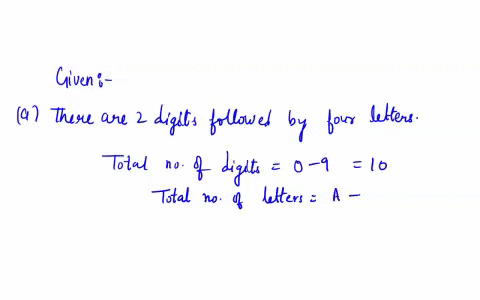 Given:-
(a) There are 2 digits followed by four letters.
Total no. of digits = 0-9 = 10
Total no. of letters = A -